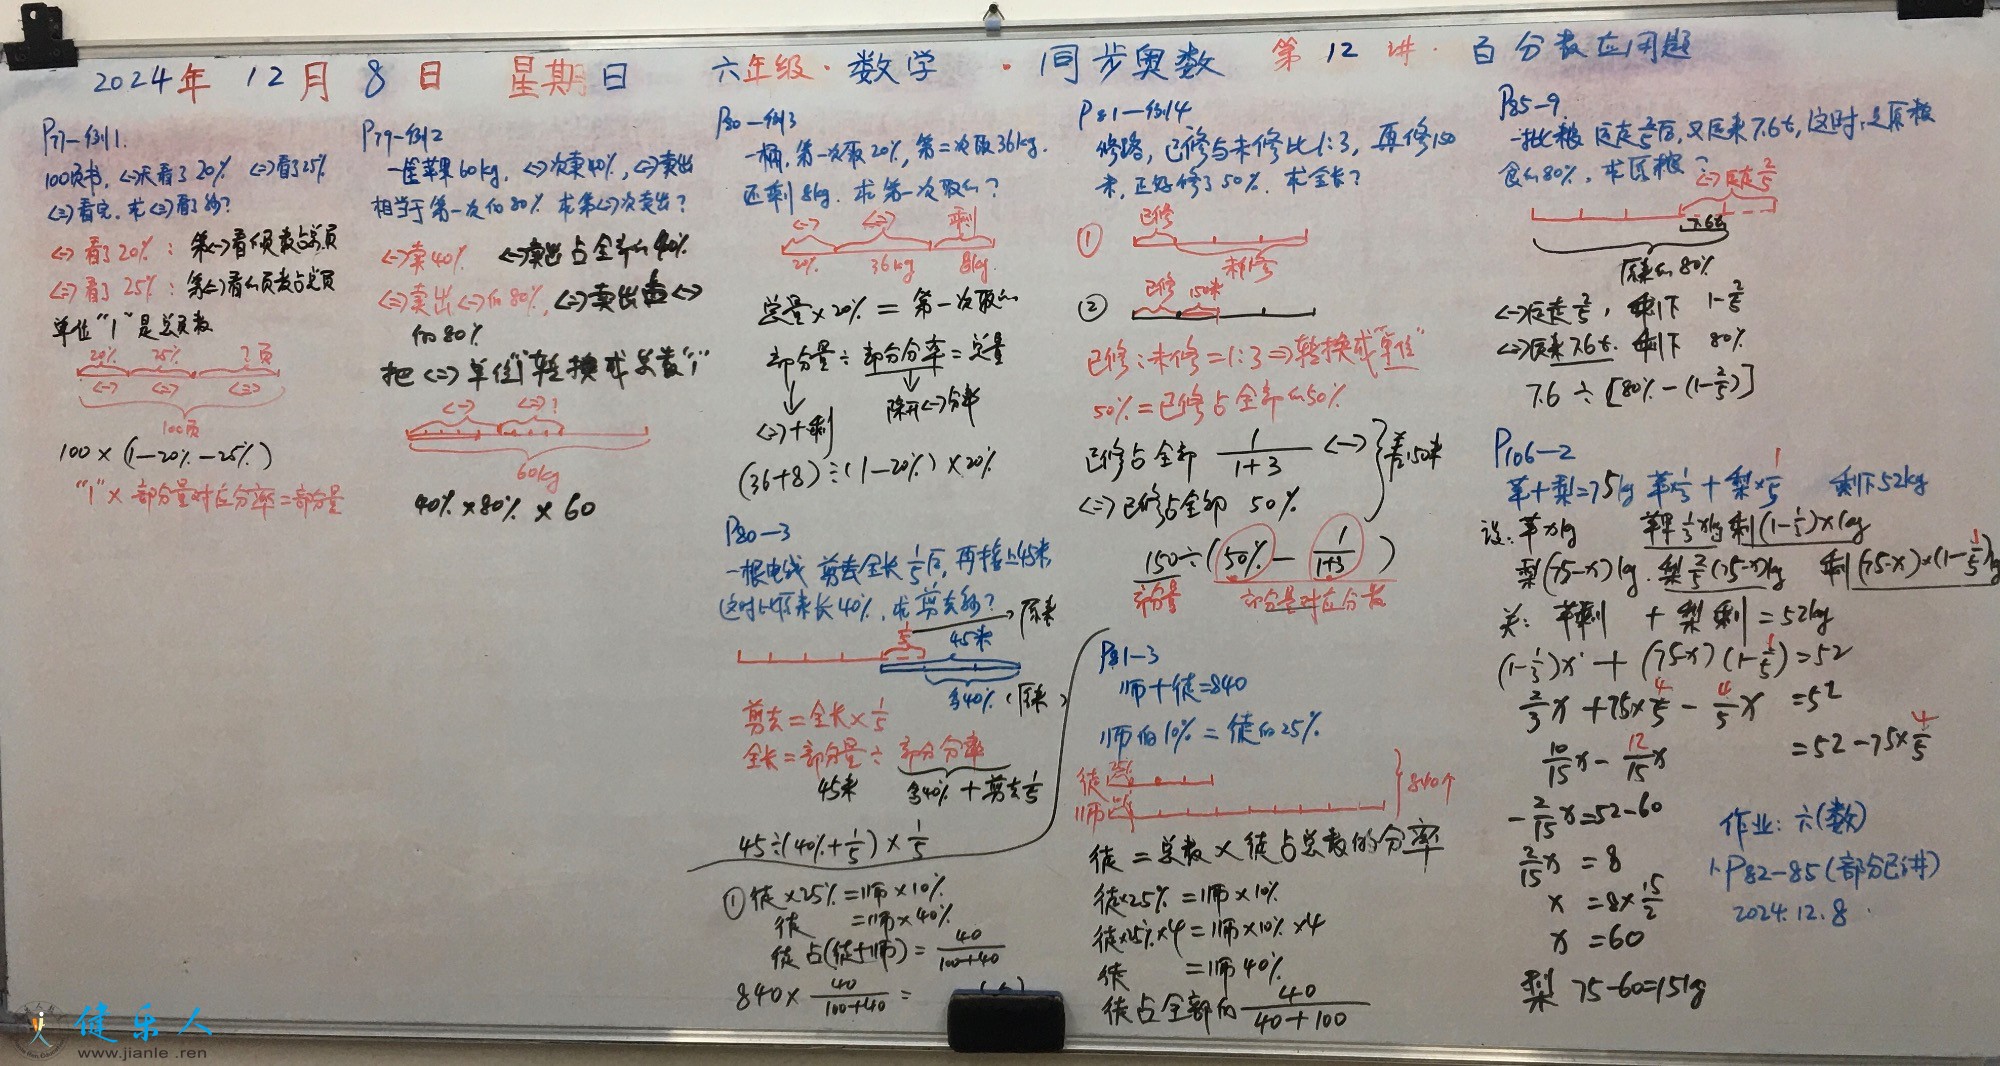 2024年 12月 8日 星期日 六年级·数学·同步奥数 第12讲·百分数应用题
P77-例1.
100页书, <一>天看了20% <二>看了25%
<三>看完. 求<三>看了多少?
<一>看了20%: 第<一>看的页数占总页
<二>看了25%: 第<二>看的页数占总页
单位"1"是总页数
20% 25% ?页
<一> <二> <三>
100页
100×(1-20%-25%)
"1"×部分量对应分率=部分量
P79-例2
一筐苹果60kg, <一>次卖40%, <二>卖出
相当于第一次的80% 求第<二>次卖出?
<一>卖40% <一>卖出占全部的40%
<二>卖出<一>的80%, <二>卖出占<一>
的80%
把<二>单位"1"转换成总数"1"
<一> <二>?
60kg
40%×80%×60
P80-例3
一桶, 第一次取20%, 第二次取36kg.
还剩8kg. 求第一次取的?
<一> <二> 剩
20% 36kg 8kg
总量×20%=第一次取的
部分量÷部分分率=总量
<二>+剩 除开<一>分率
(36+8)÷(1-20%)×20%
P80-3
一根电线 剪去全长1/5后, 再接上45米,
这时比原来长40%, 求剪去多少?
1/5 45米 原来
多40%(原来)
剪去=全长×1/5
全长=部分量÷部分分率
45米 多40%+剪去1/5
45÷(40%+1/5)×1/5
①徒×25%=师×10%
徒 =师×40%
徒占(徒+师)=40/(100+40)
840×40/(100+40)=
P81-例4
修路, 已修与未修比1:3, 再修150
米, 正好修了50%. 求全长?
① 已修
未修
② 已修 150米
已修:未修=1:3⇒转换成"单位"
50%=已修占全部的50%
已修占全部 1/(1+3) <一>
差150米
<二>已修占全部 50%
150÷(50%-1/(1+3))
部分量 部分量对应分率
P81-3
师+徒=840
师的10%=徒的25%
徒 25%
师 10%
840个
徒=总数×徒占总数的分率
徒×25%=师×10%
徒×25%×4=师×10%×4
徒 =师40%
徒占全部的40/(40+100)
P85-9
一批粮 运走2/5后, 又运来7.6t, 这时是原粮
食的80%, 求原粮?
<一>运走2/5
7.6t
原来的80%
<一>运走2/5, 剩下 1-2/5
<二>运来7.6t. 剩下 80%
7.6÷[80%-(1-2/5)]
P106-2
苹+梨=75kg 苹×1/3+梨×1/5 剩下52kg
设:苹xkg 苹果1/3xkg剩(1-1/3)xkg
梨(75-x)kg. 梨2/5(75-x)kg 剩(75-x)×(1-1/5)kg
关: 苹剩 + 梨剩=52kg
(1-1/3)x+(75-x)(1-1/5)=52
2/3x+75×4/5-4/5x =52
10/15x-12/15x =52-75×4/5
-2/15x=52-60
2/15x =8
x =8×15/2
x =60
梨 75-60=15kg
作业: 六(数)
1. P82-85(部分已讲)
2024.12.8.
健乐人
www.jianle.ren